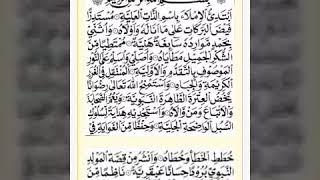 أَبْتَدِئُ الْإِمْلَاءَ بِاسْمِ الذَّاتِ الْعَلِيَّةِ ۞ مُسْتَدِرًّا
فَيْضَ الْبَرَكَاتِ عَلَى مَا أَنَالَهُ وَأَوْلَاهُ ۞ وَأُثَنِّي
بِحَمْدٍ مَوَارِدُهُ سَائِغَةٌ هَنِيَّةٌ ۞ مُمْتَطِيًا مِنَ
الشُّكْرِ الْجَمِيلِ مَطَايَاهُ ۞ وَأُصَلِّي وَأُسَلِّمُ عَلَى النُّورِ
الْمَوْصُوفِ بِالتَّقَدُّمِ وَالْأَوَّلِيَّةِ ۞ الْمُنْتَقِلِ فِي الْغُرَرِ
الْكَرِيمَةِ وَالْجِبَاهِ ۞ وَأَسْتَمْنِحُ اللهَ تَعَالَى رِضْوَانًا
يَخُصُّ الْعِتْرَةَ الطَّاهِرَةَ النَّبَوِيَّةَ ۞ وَيَعُمُّ الصَّحَابَةَ
وَالْأَتْبَاعَ وَمَنْ وَالَاهُ ۞ وَأَسْتَجْدِيهِ هِدَايَةً لِسُلُوكِ
السُّبُلِ الْوَاضِحَةِ الْجَلِيَّةِ ۞ وَحِفْظًا مِنَ الْغَوَايَةِ فِي
خُطَطِ الْخَطَأِ وَخُطَاهُ ۞ وَأَنْشُرُ مِنْ قِصَّةِ الْمَوْلِدِ
النَّبَوِيِّ بُرُودًا حِسَانًا عَبْقَرِيَّةً ۞ نَاظِمًا مِنَ